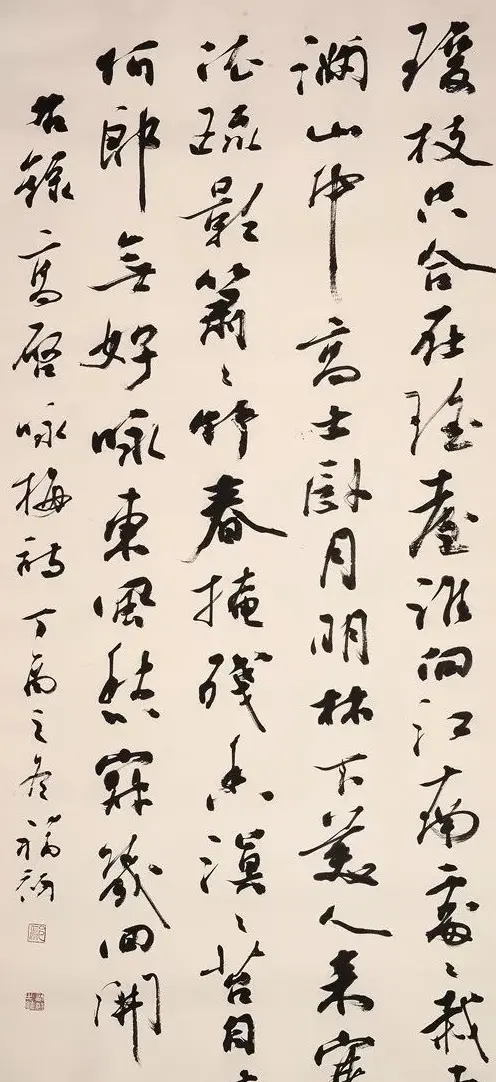 瓊枝只合在瑤臺誰向江南處々栽
滿山中高士臥月明林下美人來寒
依疏影蕭々竹春掩殘香漠々苔自
何郎無好詠東風愁寂幾回開
右錄高啓詠梅詩丁之冬福